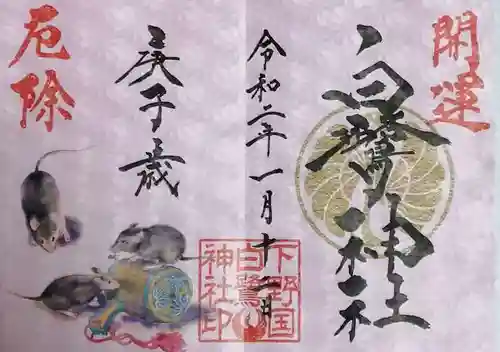 開運
白鷺神社
令和二年一月十一日
下野国
白鷺
神社印
庚子歳
厄除